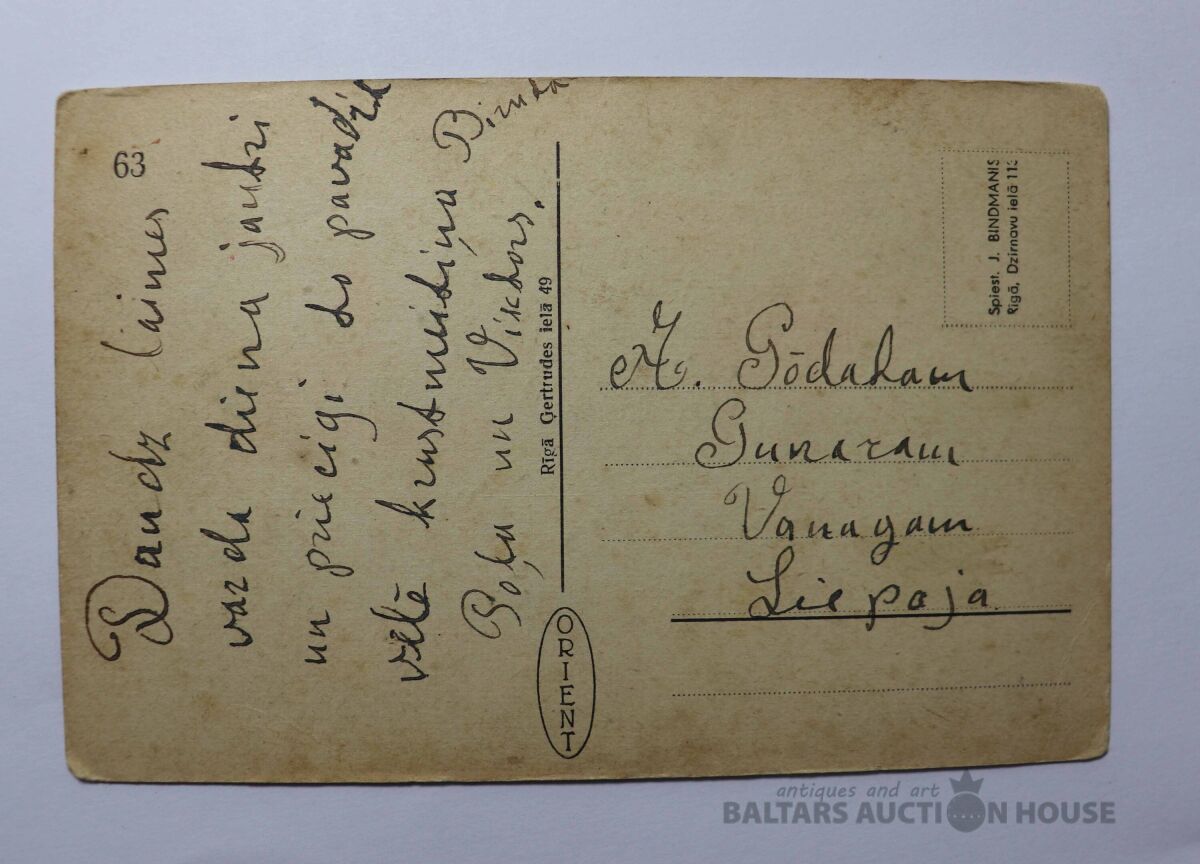 63
Daudz laimes
varda diena jautri
un priecigi to pavadīt
vēlē krustmātiņa Biruta
Poļa un Viktors.
Rīgā Ģertrudes ielā 49
ORIENT
Spiest. J. BINDMANIS
Rīgā, Dzirnavu ielā 113
A. Gōdaham
Gunaram
Vanagam
Liepaja
antiques and art
BALTARS AUCTION HOUSE